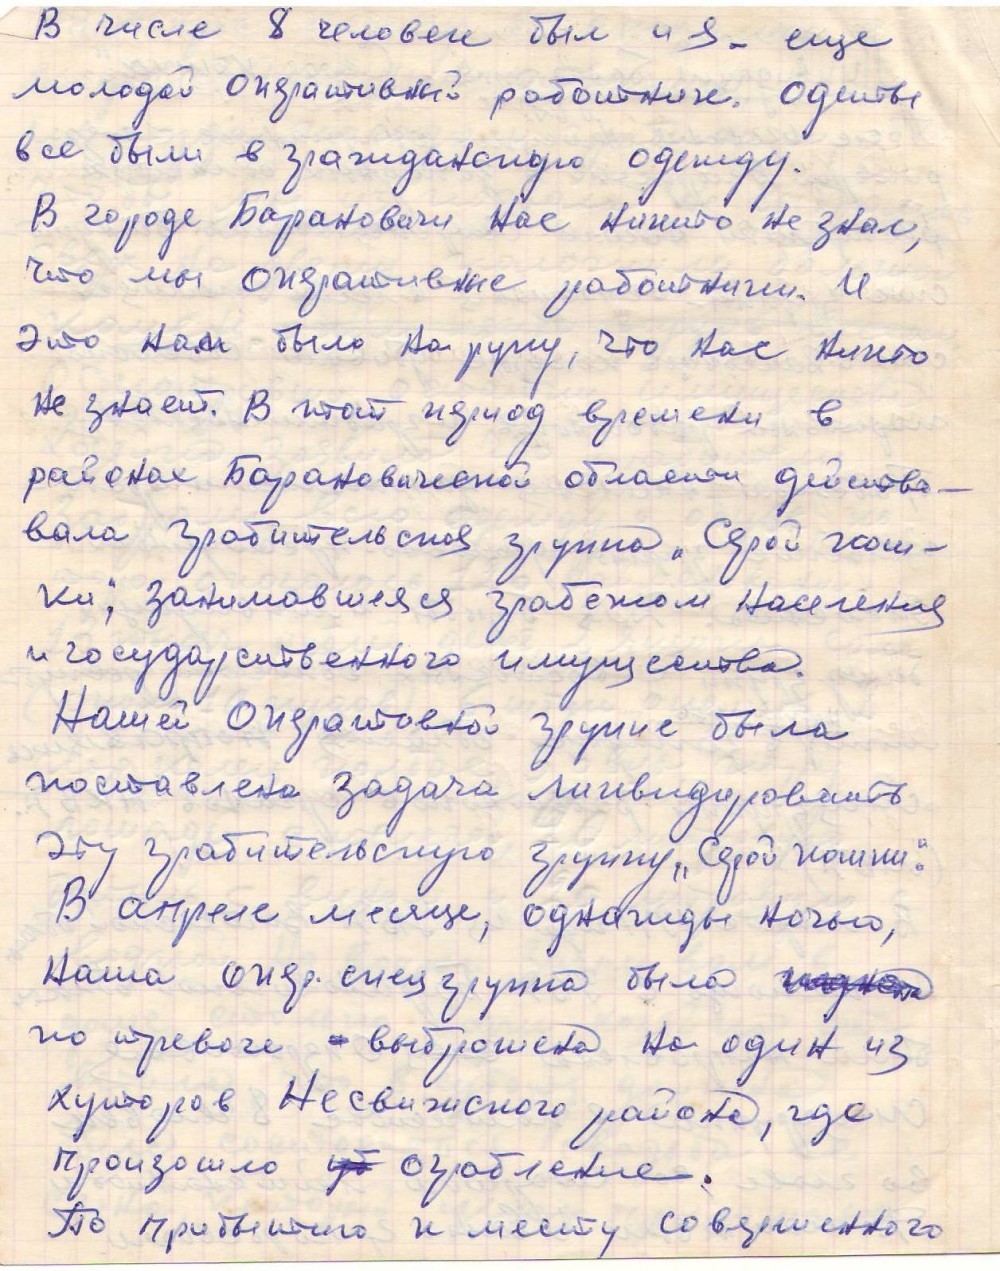 В числе 8 человек был и я - еще
молодой оперативный работник. Одеты
все были в гражданскую одежду.
В городе Барановичи нас никто не знал,
что мы оперативные работники. И
это нам было на руку, что нас никто
не знает. В этот период времени в
районах Барановической области действо-
вала грабительская группа „Серой кош-
ки“, занимавшаяся грабежом населения
и государственного имущества.
Нашей оперативной группе была
поставлена задача ликвидировать
эту грабительскую группу „Серой кошки“.
В апреле месяце, однажды ночью,
наша опер. спец группа была
по тревоге - выброшена на один из
хуторов Несвижского района, где
произошло ограбление.
По прибытию к месту совершенного